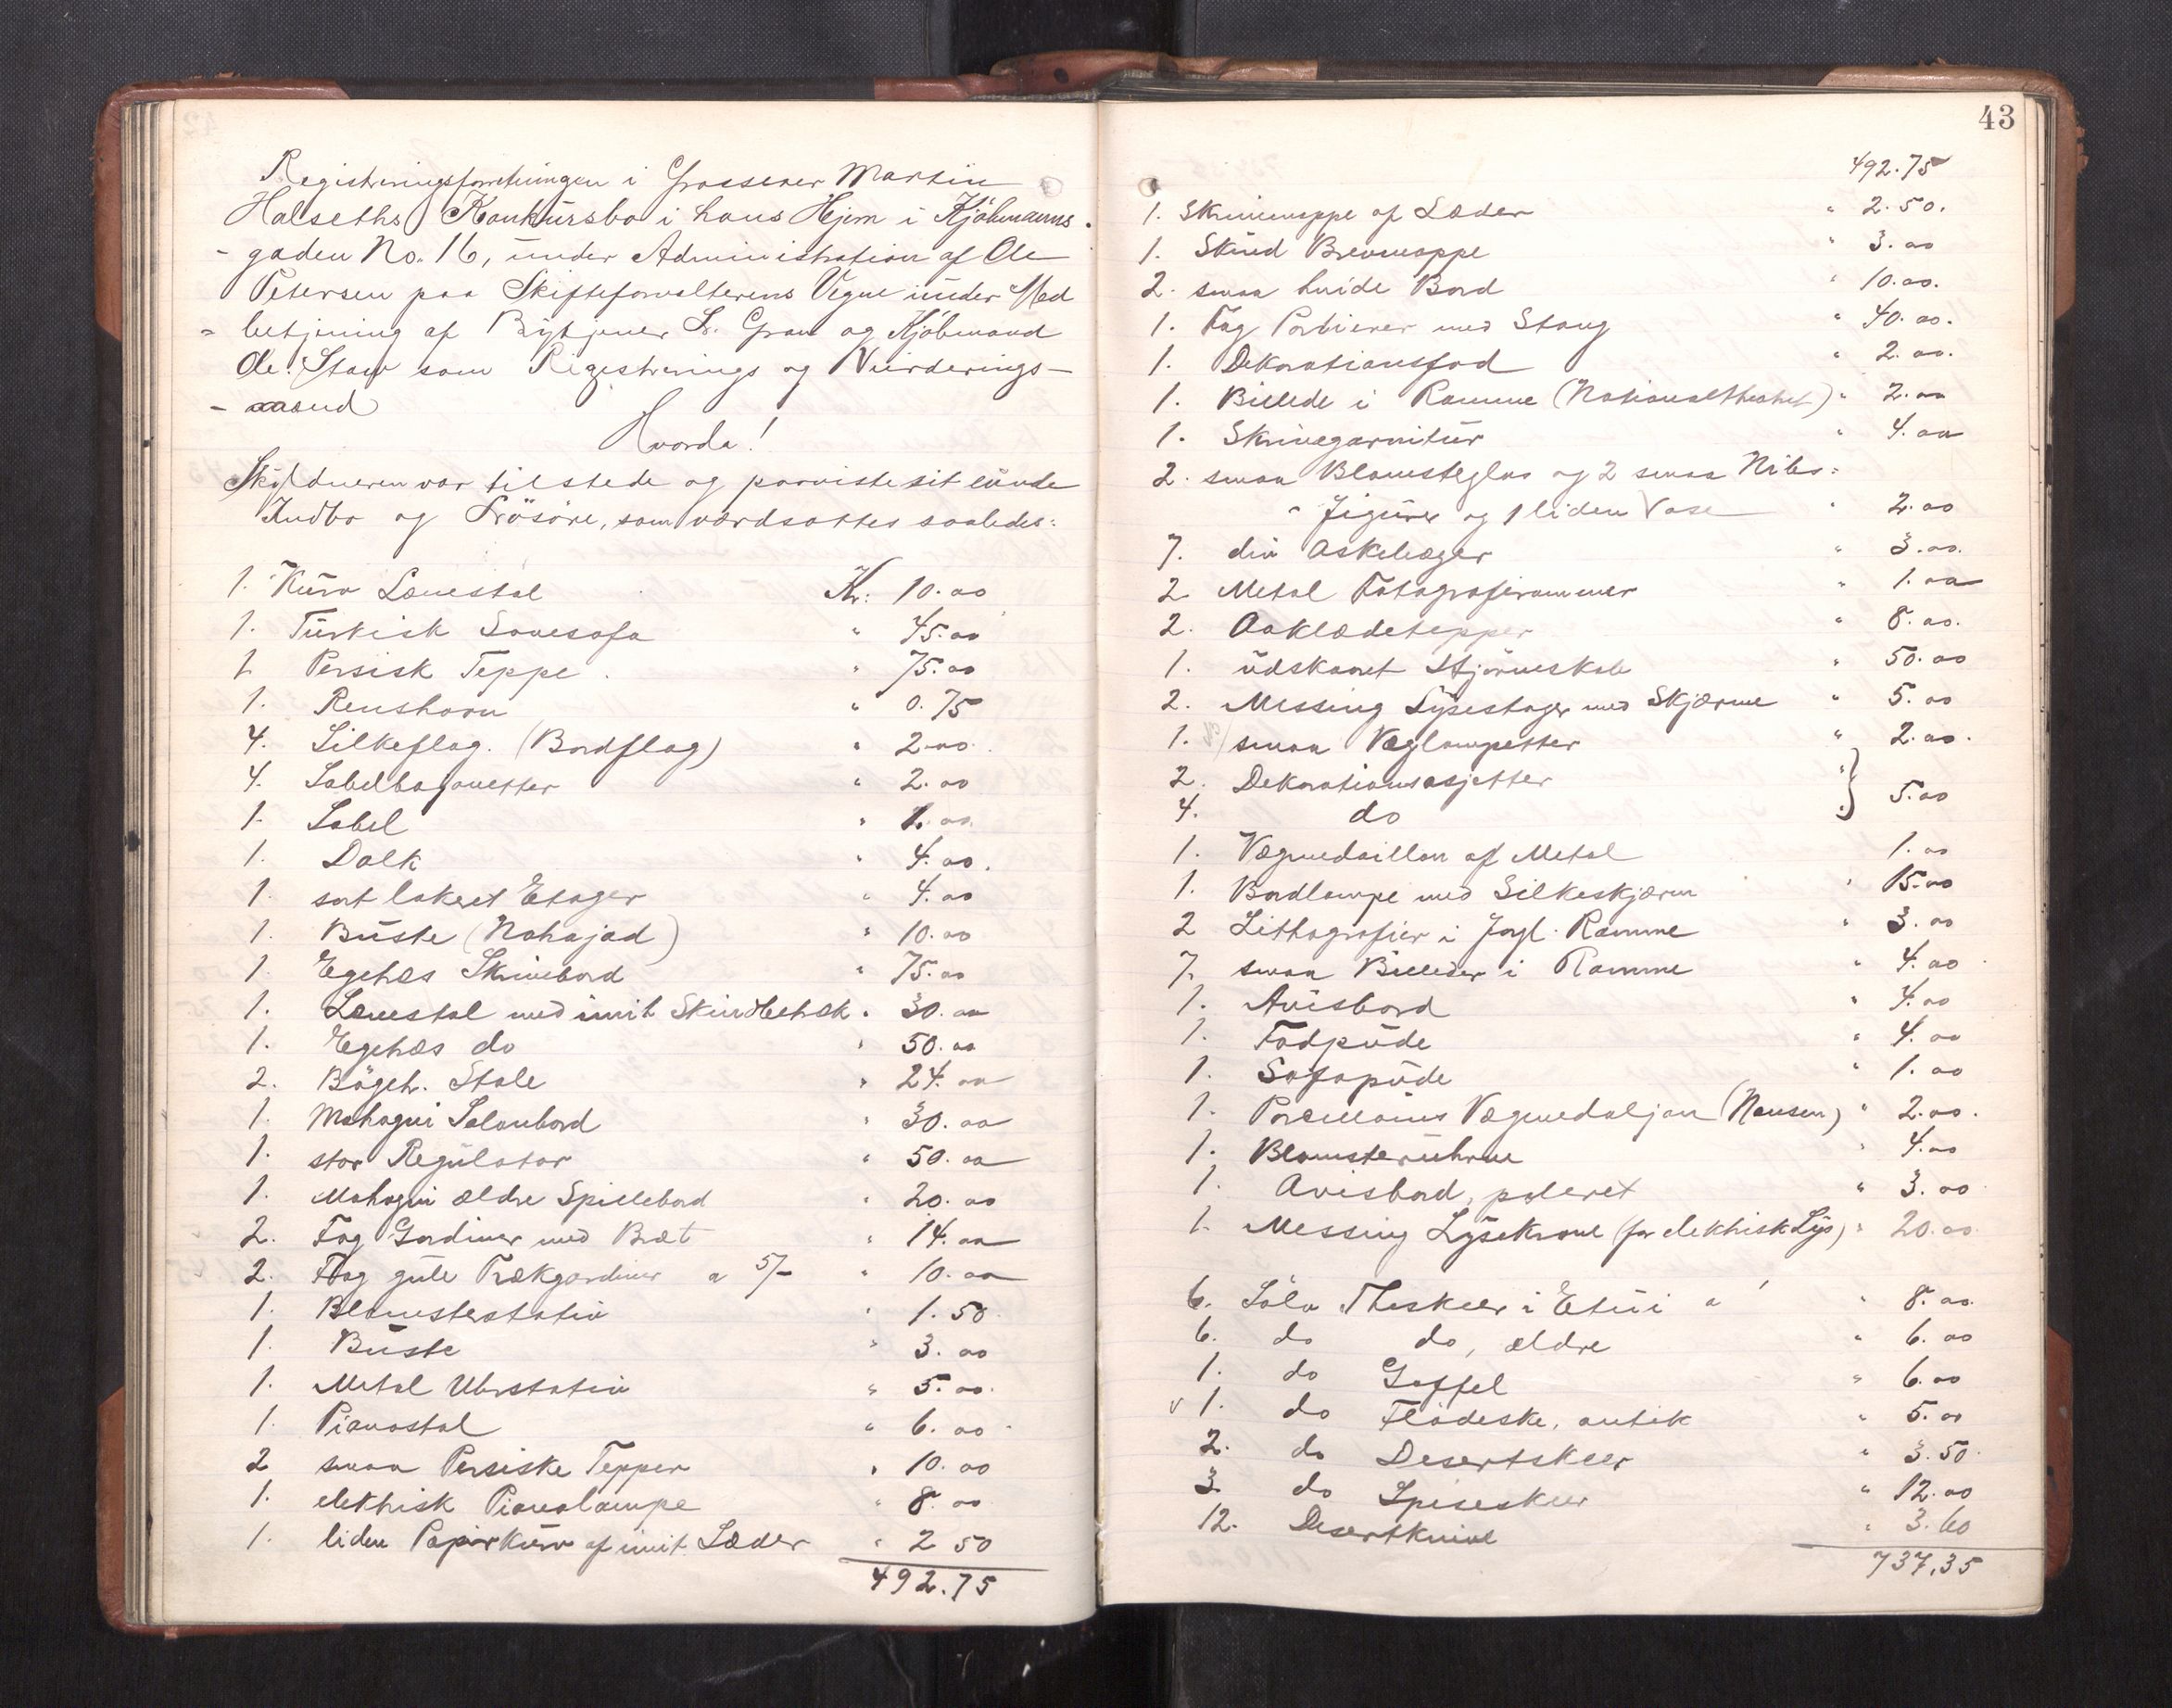 Registreringsforretningen i Grosserer Martin
Halseths Konkursbo i hans Hjem i Kjøbmanns-
- gaden No. 16, under Administration af Ole
Petersen paa Skifteforvalterens Vegne under Med
= betjening af Bytjener Gran og Kjøbmand
Ole Stav som Registrerings og Vurderings-
- mænd
Hvorda!
Skyldneren var tilstede og paaviste sit eiende
Indbo og Løsøre, som værdsattes saaledes:
1. Kurv Lænestol Kr: 10.00
1. Türkisk Sovesofa " 45.00
1. Persisk Teppe " 75.00
1. Renshorn " 0.75
4. Silkeflag. (Bordflag) " 2.00
4. Sabelbajonetter " 2.00
1. Sabel " 1.00
1. Dolk " 4.00.
1. sort lakeret Etager " 4.00
1. Büste (Nohajad) " 10.00
1. Egetræs Skrivebord " 75.00
1. Lænestol med imit Skindbetræk " 30.00
1. Egetræs do " 50.00
2. Bøgetr. Stole " 24.00
1. Mahogni Salonbord " 30.00
1. stor Regülator " 50.00
1. Mahogni ældre Spillebord " 20.00
2. Fag Gardiner med Bræt " 14.00
2. Fag gule Trækgardiner a 5/- " 10.00
1. Blomsterstativ " 1.50
1. Büste " 3.00
1. Metal Uhrstativ " 5.00
1. Pianostol " 6.00
2 smaa Persiske Tepper " 10.00
1. elektrisk Pianolampe " 8.00
1. liden Papirkurv af imit. Læder " 2 50
492.75
43
492.75
1. Skrivemappe af Læder " 2.50.
1. Skind Brevmappe " 3.00
2. smaa hvide Bord " 10.00.
1. Fag Portierer med Stang " 40.00.
1. Dekorationsfad " 2.00.
1. Billede i Ramme (Nationaltheatret) " 2.00
1. Skrivegarnitür " 4.00
2. smaa Blomsterglas og 2 smaa Nibs=
" Figurer og 1 liden Vase " 2.00
7. div Askebæger " 3.00.
2 Metal Fotografirammer " 1.00
2. Aaklædetepper " 8.00.
1. üdskaaret Hjørneskab " 50.00
2. Messing Lysestager med Skjærme " 5.00
1. smaa Væglampetter " 2.00.
2. Dekorationsasjetter "
4. do } 5.00
1. Vægmedaillon af Metal 1.00
1. Bordlampe med Silkeskjærm " 15.00
2 Lithografier i forgl. Ramme " 3.00
7. smaa Billeder i Ramme " 4.00
1. Avisbord " 4.00
1. Fodpüde " 4.00
1. Sofapüde " 1.00
1. Porcellains Vægmedaljon (Nansen) " 2.00.
1. Blomsterührne " 4.00
1. Avisbord, poleret " 3.00
1. Messing Lysekrone (for elektrisk Lys) " 20.00
6. Sølv Theskeer i Etüi a " 8.00.
6. do do, ældre " 6.00
1. do Gaffel " 6.00
v 1. do Flødeske, antik " 5.00
2. do Desertskeer " 3.50
3. do Spiseskeer " 12.00
12. Desertknive " 3.60
737,35